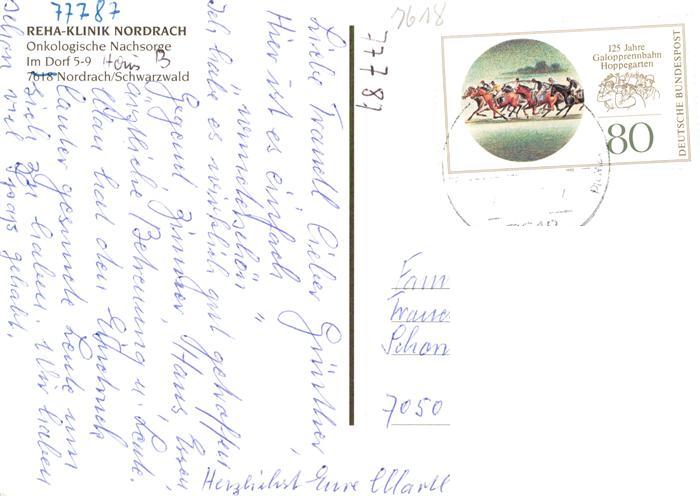 77787
REHA-KLINIK NORDRACH
Onkologische Nachsorge
Im Dorf 5-9 Haus B
7618 Nordrach/Schwarzwald
Liebe Traudl lieber Günther,
Hier ist es einfach
"wunderschön"
Ich habe es wirklich gut getroffen
Gegend Zimmer, Haus, Essen
ärztliche Betreuung u. Leute.
Man hat den Eindruck
lauter gesunde Leute um
sich zu haben. Wir haben
schon viel Spass gehabt.
Herzlichst Eure
77787
7618
125 Jahre
Galopprennbahn
Hoppegarten
80
DEUTSCHE BUNDESPOST
Fam
Schon
7050